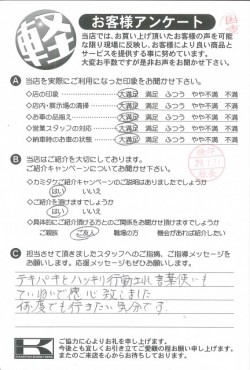 軽
お客様アンケート
当店では、お買い上げ頂いたお客様の声を可能
な限り現場に反映し、お客様により良い商品と
サービスを提供する事に努めています。
大変お手数ですが是非お声をお聞かせ下さい。
A 当店を実際にご利用になった印象をお聞かせ下さい。
◇店の印象 大満足 満足 ふつう やや不満 不満
◇店内・展示場の清掃 大満足 満足 ふつう やや不満 不満
◇お車の品揃え 大満足 満足 ふつう やや不満 不満
◇営業スタッフの対応 大満足 満足 ふつう やや不満 不満
◇納車時のお車の状態 大満足 満足 ふつう やや不満 不満
B 当店はご紹介を大切にしております。
ご紹介キャンペーンについてお聞かせ下さい。
◇カミタケご紹介キャンペーンのご説明はありましたでしょうか
はい いいえ
◇ご紹介を頂けますでしょうか
はい いいえ
◇具体的にご紹介頂ける方とのご関係をお聞かせ頂けますでしょうか
ご親戚 ご友人 職場の方 機会があれば紹介したい
C 担当させて頂きましたスタッフへのご指摘、ご指導メッセージを
お願いします。応援メッセージもぜひお願いします。
テキパキとハッキリ行動され、言葉使いも
ていねいで感心致しました
何度でも行きたい気分です。
ご協力に心よりお礼を申し上げます。
今後とも宜しくお引き立てご愛顧の程お願い申し上げます。
またのご来店を心からお待ちしております。